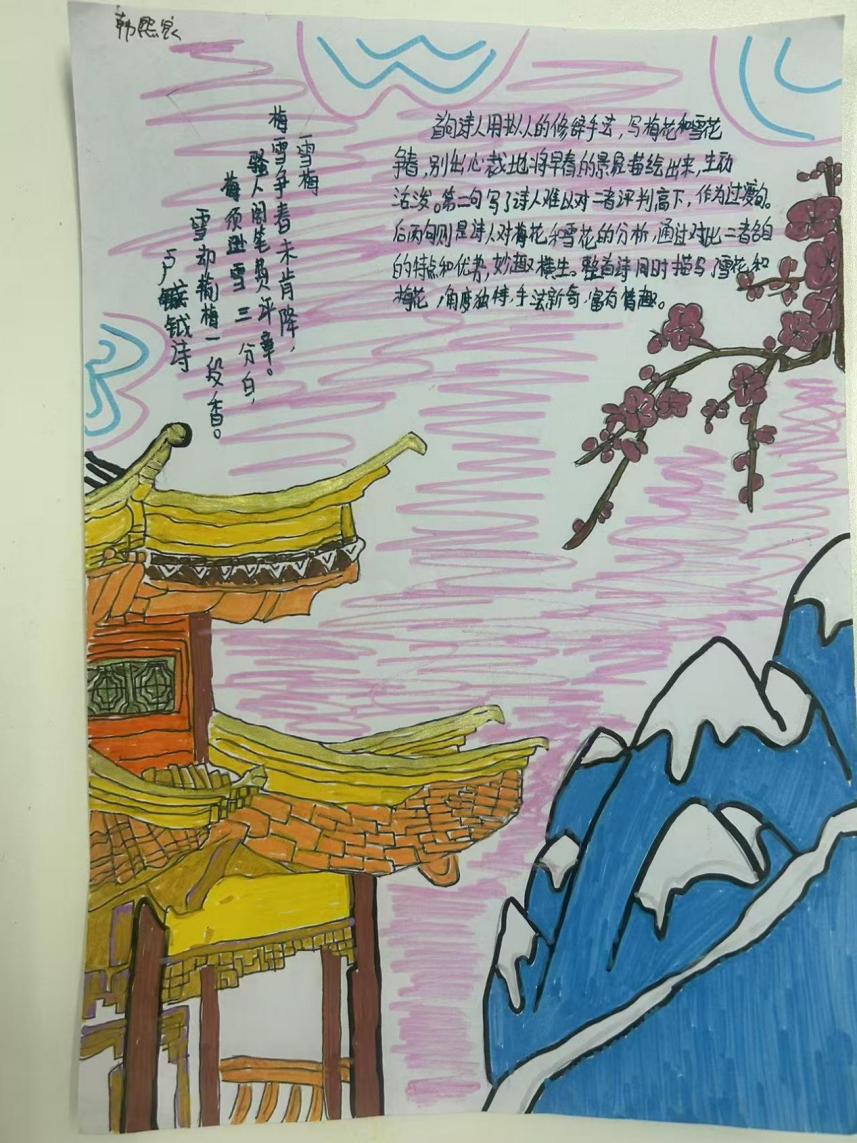 韩熙
雪梅
梅雪争春未肯降，
骚人阁笔费评章。
梅须逊雪三分白，
雪却输梅一段香。
卢钺诗
首句诗人用拟人的修辞手法，写梅花和雪花
争春，别出心裁地将早春的景象描绘出来，生动
活泼。第二句写了诗人难以对二者评判高下，作为过渡句。
后两句则是诗人对梅花和雪花的分析，通过对比二者各自
的特点和优势，妙趣横生。整首诗同时描写了雪花和
梅花，角度独特，手法新奇，富有情趣。